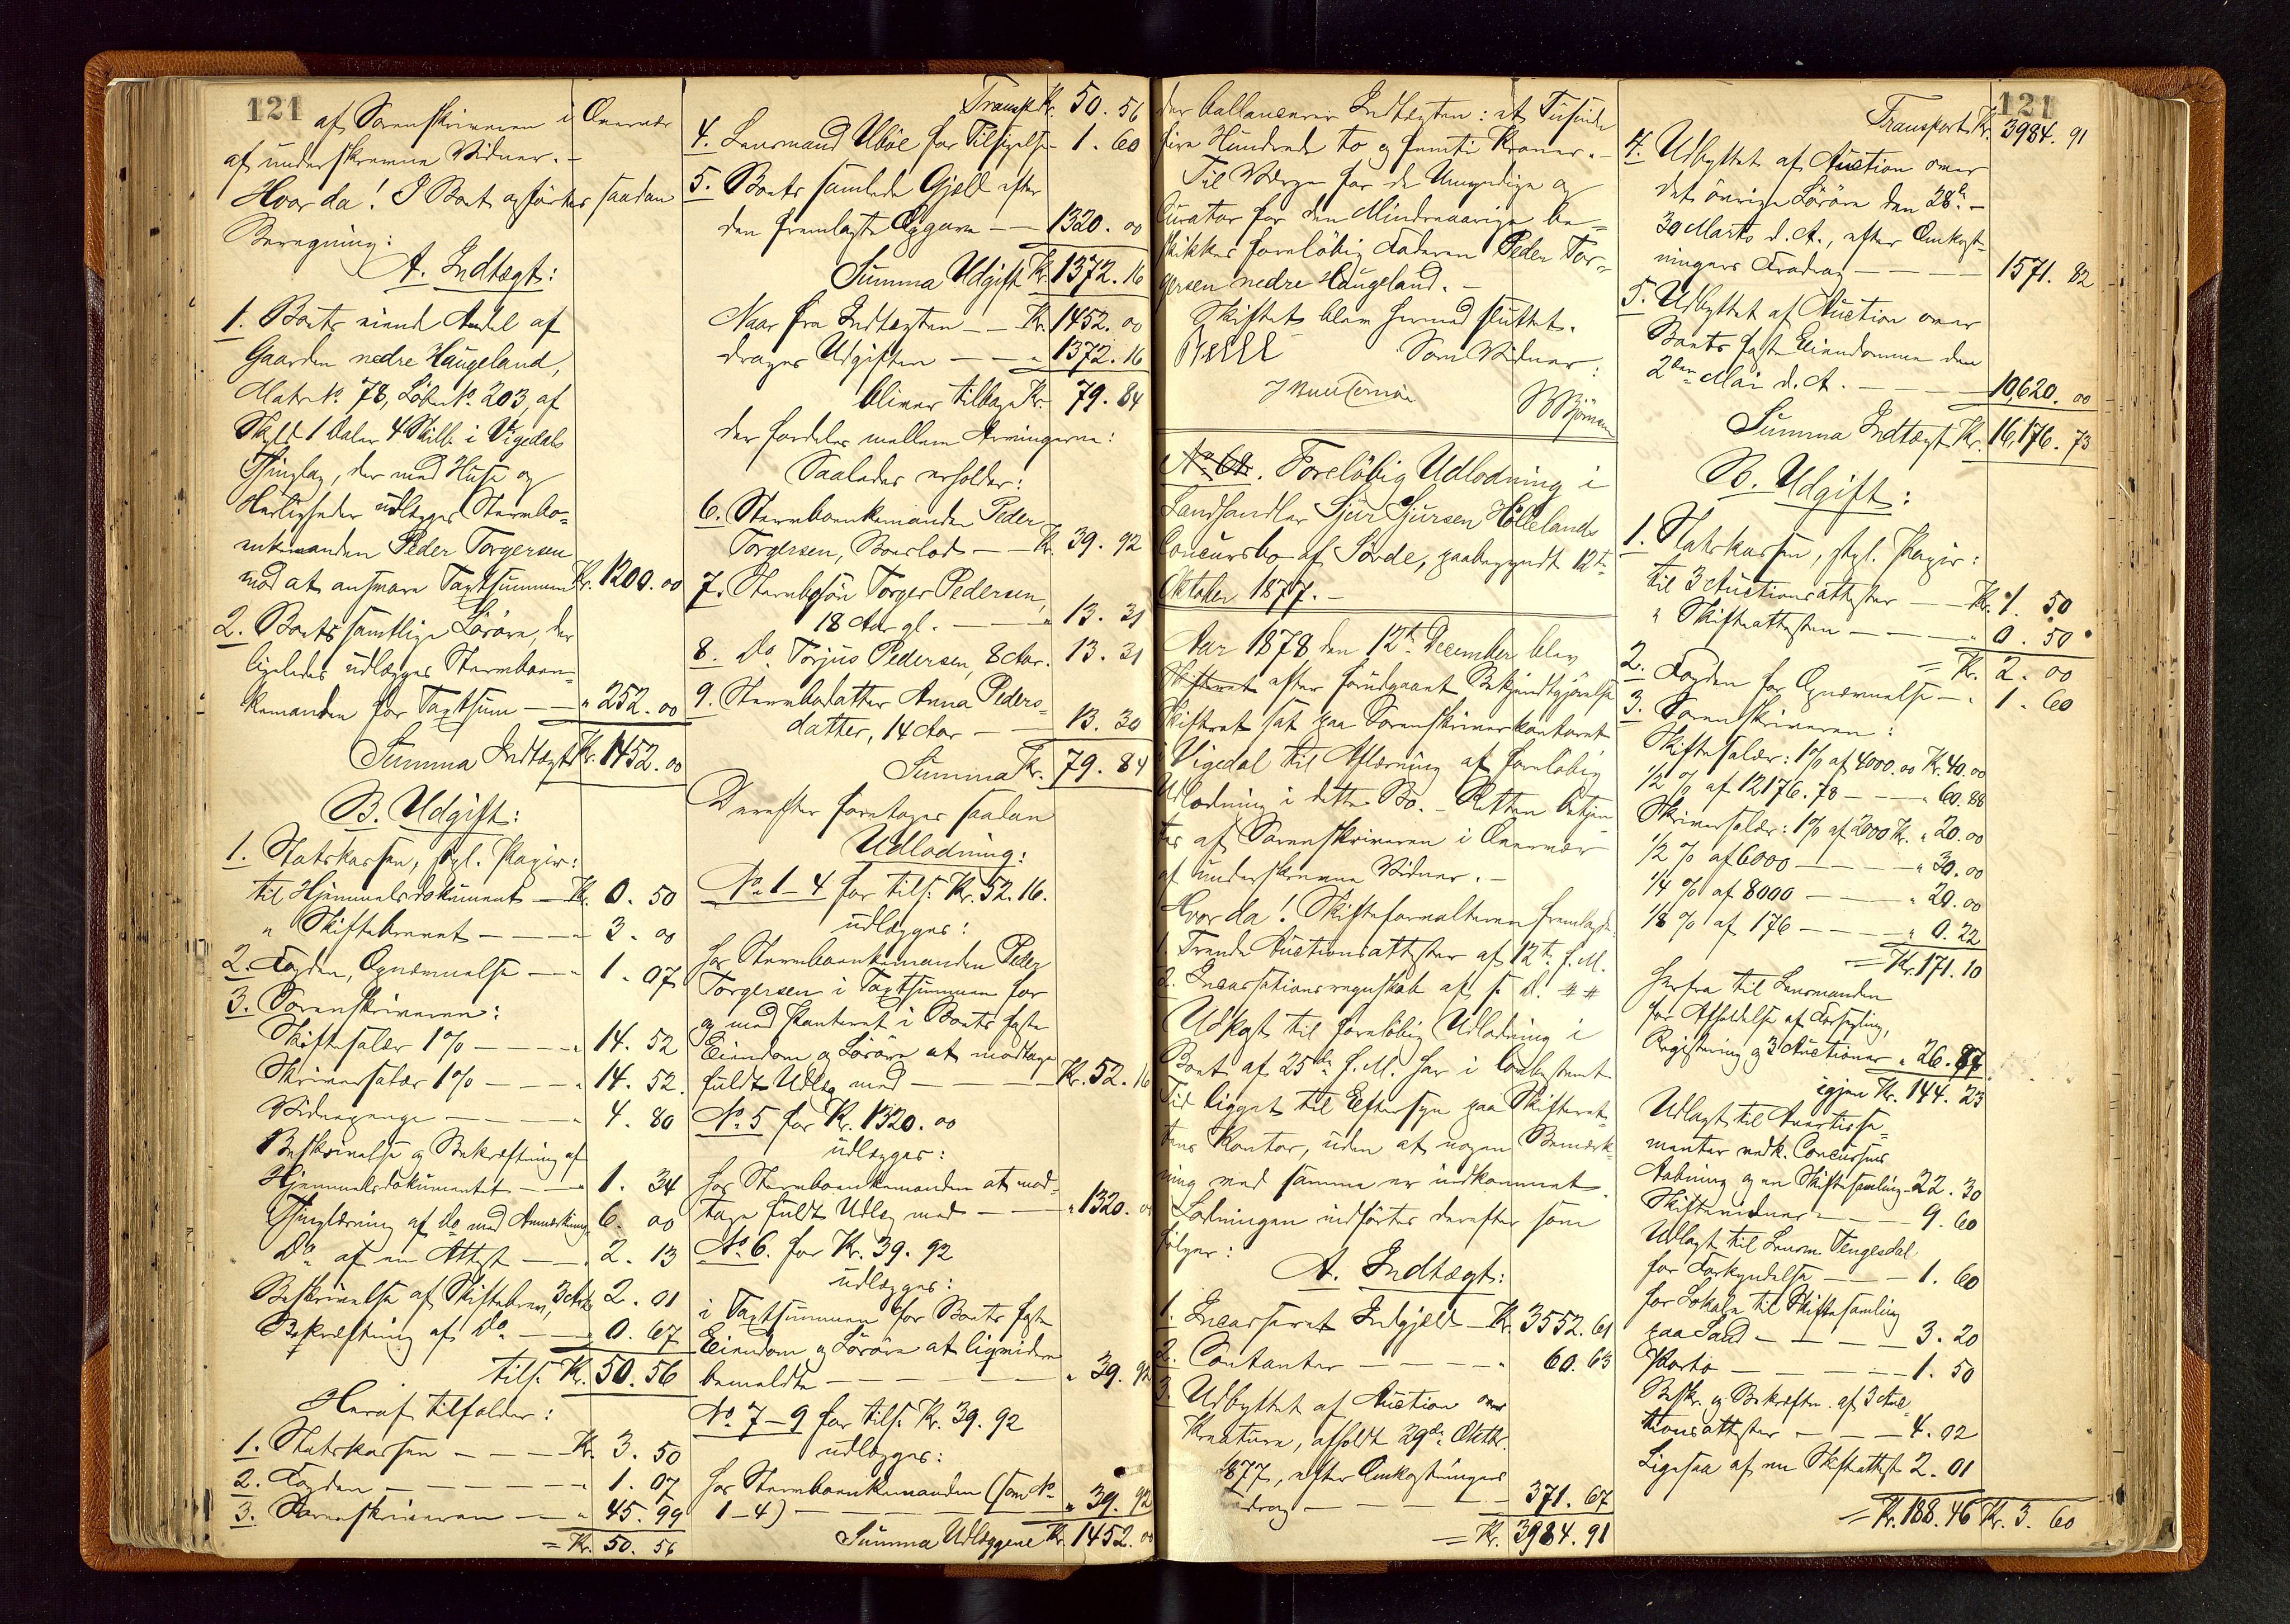 121
af Sorenskriveren i Overvær
af underskrevne Vidner. –
Hvorda! I Boet opførtes saadan
Beregning:
A. Indtægt:
1. Boets eiende Andel af
Gaarden nedre Haugeland,
Matr. No. 78, Løbe No. 203, af
Skyld 1 Daler 4 Skill. i Vigedals
Thinglag, der med Huse og
Herligheder udlægges Stervbo-
enkemanden Peder Torgersen
mod at ansvare Taxtsummen Kr. 1200.00
2. Boets samtlige Løsøre, der
ligeledes udlægges Stervboen-
kemanden for Taxtsum — " 252.00
Summa Indtægt Kr. 1452.00
B. Udgift:
1. Statskassen, stpl. Papir:
til Hjemmelsdokument — Kr. 0.50
" Skiftebrevet — " 3.00
2. Fogden, Opnævnelse — " 1.07
3. Sorenskriveren:
Skiftesalær 1% — " 14.52
Skriversalær 1% — " 14.52
Vidnepenge — " 4.80
Beskrivelse og Bekræftning af
Hjemmelsdokumentet — " 1.34
Thinglæsning af do med Anmærkning 6.00
Do af en Attest — 2.13
Beskrivelse af Skiftebrev, 3 Ark 2.01
Bekræftning af do — " 0.67
tils. Kr. 50.56
Heraf tilfalder:
1. Statskassen — Kr. 3.50
2. Fogden — " 1.07
3. Sorenskriveren — " 45.99
= Kr. 50.56
Transp. Kr. 50.56
4. Lensmand Ubøe for Tilsigelse 1.60
5. Boets samlede Gjeld efter
den fremlagte Opgave — 1320.00
Summa Udgift Kr. 1372.16
Naar fra Indtægten — Kr. 1452.00
drages Udgiften — " 1372.16
bliver tilbage Kr. 79.84
der fordeles mellem Arvingerne:
Saaledes erholder:
6. Stervboenkemanden Peder
Torgersen, Boeslod — Kr. 39.92
7. Stervbosøn Torger Pedersen,
18 Aar gl. — " 13.31
8. Do Torjus Pedersen, 8 Aar. 13.31
9. Stervbodatter Anna Peders-
datter, 14 Aar — 13.30
Summa Kr. 79.84
Derefter foretoges saadan
Udlodning:
No. 1–4 for tils. Kr. 52.16.
udlægges:
hos Stervboenkemanden Peder
Torgersen i Taxtsummen for
og med Panteret i Boets faste
Eiendom og Løsøre at modtage
fuldt Udlæg med — Kr. 52.16
No. 5 for Kr. 1320.00
udlægges:
hos Stervboenkemanden at mod-
tage fuldt Udlæg med — " 1320.00
No. 6. for Kr. 39.92
udlægges:
i Taxtsummen for Boets faste
Eiendom og Løsøre at liqvidere
bemeldte — " 39.92
No. 7–9 for tils. Kr. 39.92
udlægges:
hos Stervboenkemanden (som No.
1–4) — " 39.92
Summa Udlæggene Kr. 1452.00
der ballancerer Indtægten: et Tusinde
fire Hundrede to og femti Kroner. –
Til Værge for de Umyndige og
Curator for den Mindreaarige be-
skikkes foreløbig Faderen Peder Tor-
gersen nedre Haugeland. –
Skiftet blev hermed sluttet.
Som Vidner:
No. 62. Foreløbig Udlodning i
Landhandler Sjur Sjursen Hølleland
Concursbo af Søvde, paabegyndt 12te
Oktober 1877. –
Aar 1878 den 12te December blev
Skifteret efter forudgaaet Bekjendtgjørelse
Skifteret sat paa Sorenskriverkontoret
i Vigedal til Aflæsning af foreløbig
Udlodning i dette Bo. – Retten betjen-
tes af Sorenskriveren i Overvær
af underskrevne Vidner. –
Hvorda! Skifteforvalteren fremlagde:
1. Trende Auctionsattester af 12te f. M.
2. Incassationsregnskab af s. d.
Udkast til foreløbig Udlodning i
Boet af 25de f. M. har i lovbestemt
Tid ligget til Eftersyn paa Skifteret-
tens Kontor, uden at nogen Bemærk-
ning med samme er indkommet.
Lodningen indførtes derefter som
følger:
A. Indtægt:
1. Incasseret Indgjeld — Kr. 3552.61
2. Contanter — " 60.63
3. Udbyttet af Auction over
Kreature, afholdt 29de Oktbr.
1877, efter Omkostningers
Fradrag — 371.67
= Kr. 3984.91
121
Transport Kr. 3984.91
4. Udbyttet af Auction over
det øvrige Løsøre den 28de –
30 Marts d. A., efter Omkost-
ningers Fradrag — 1571.82
5. Udbyttet af Auction over
Boets faste Eiendomme den
2den Mai d. A. — 10,620.00
Summa Indtægt Kr. 16,176.73
B. Udgift:
1. Statskassen, stpl. Papir:
til 3 Auctionsattester — Kr. 1.50
" Skifteattesten — " 0.50
= Kr. 2.00
2. Fogden for Opnævnelse — " 1.60
3. Sorenskriveren:
Skiftesalær: 1% af 4000.00 Kr. 40.00
1/2 % af 12176.73 — " 60.88
Skriversalær: 1% af 2000 Kr. " 20.00
1/2 % af 6000 — " 30.00
1/4 % af 8000 — " 20.00
1/8 % af 176 — " 0.22
= Kr. 171.10
Herfra til Lensmanden
for Afholdelse af Forsegling,
Registrering og 3 Auctioner " 26.87
igjen Kr. 144.23
Udlagt til Avertisse-
menter vedk. Concursens
Aabning og en Skiftesamling 22.30
Skiftevidner — 9.60
Udlagt til Lensm. Tengesdal
for Forkyndelse — 1.60
for Lokale til Skiftesamling
paa Sand — 3.20
Porto — 1.50
Beskr. og Bekræftn. af 3 Auc-
tionsattester — 4.02
Ligesaa af en Skifteattest 2.01
= Kr. 188.46 Kr. 3.60